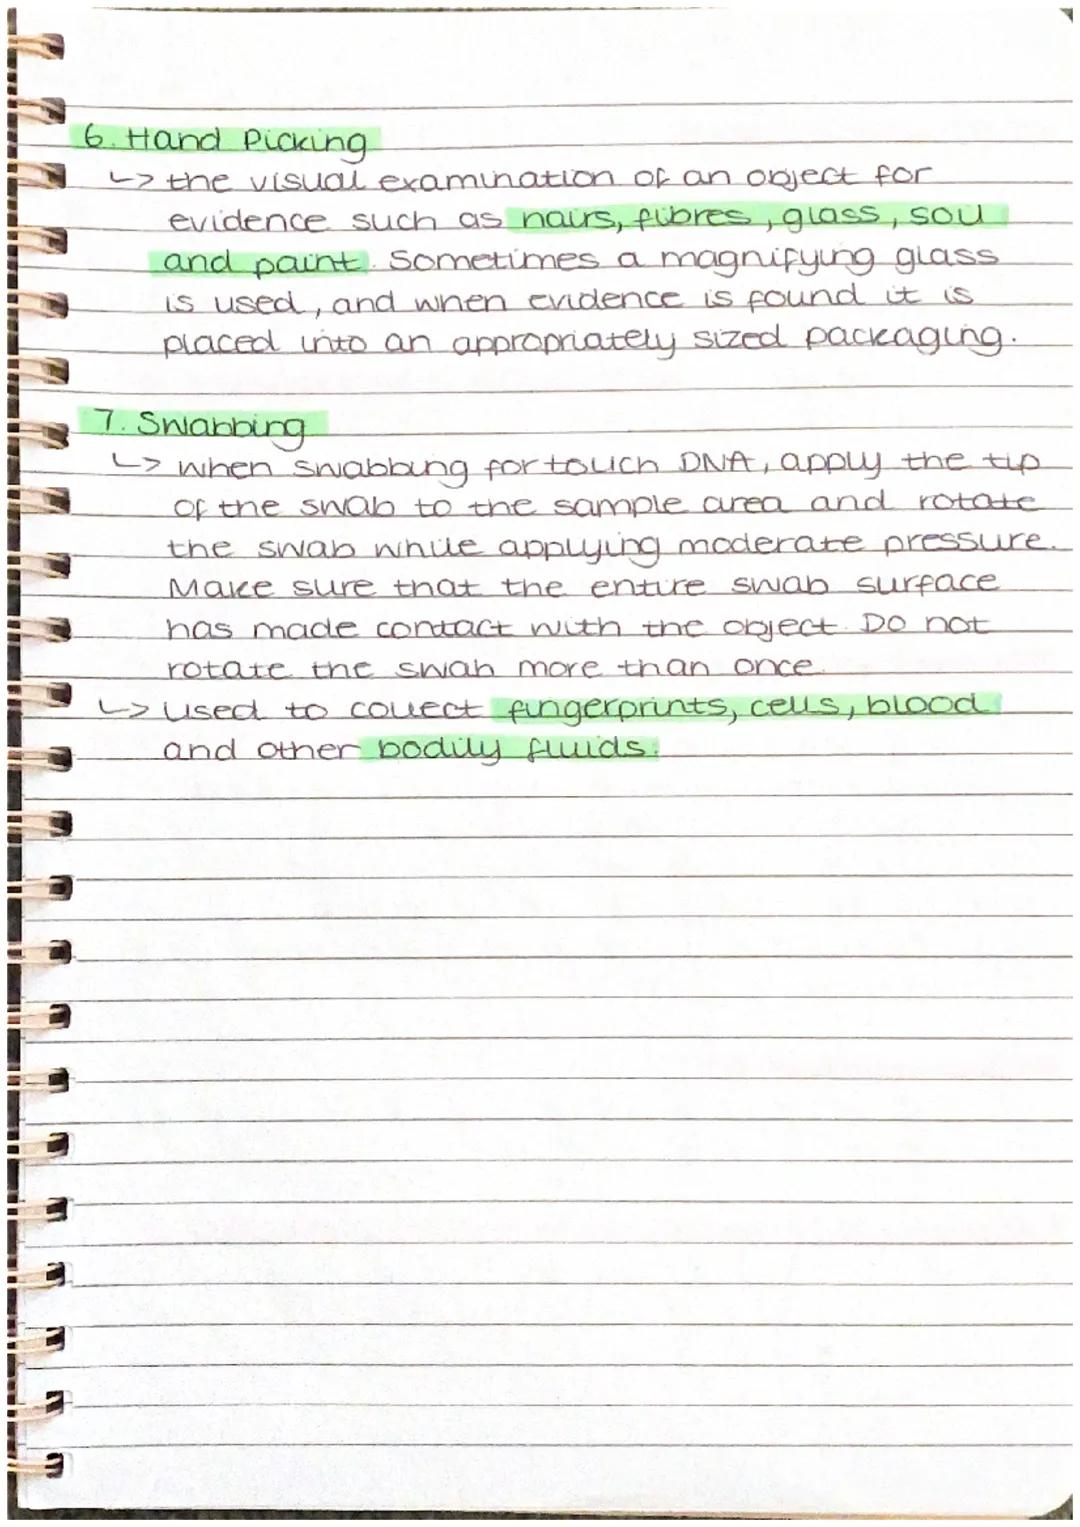 6. Hand Picking
↳ the visual examination of an object for
evidence such as hairs, fibres, glass, soil
and paint. Sometimes a magnifying glass
is used, and when evidence is found it is
placed into an appropriately sized packaging.
7. Swabbing
↳ when swabbing for touch DNA, apply the tip
of the swab to the sample area and rotate
the swab while applying moderate pressure.
Make sure that the entire swab surface
has made contact with the object. Do not
rotate the swab more than once.
↳ used to collect fingerprints, cells, blood
and other bodily fluids.